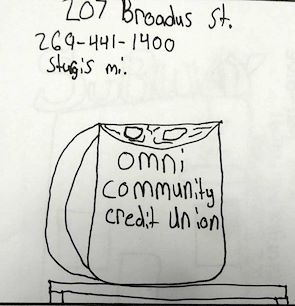 207 Broadus St.
269-441-1400
Sturgis mi.
omni
community
credit Union